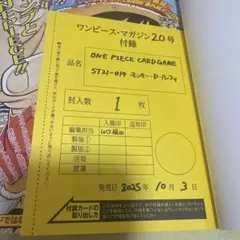 ワンピース・マガジン20号
付録
品名
ONE PIECE CARD GAME
ST21-014 モンキー・D・ルフィ
封入数
1
枚
入稿印
返稿印
編集担当
製版①
製版②
活版
営業
発売日 2025年 10月 3日
付録カードの
取り出し方